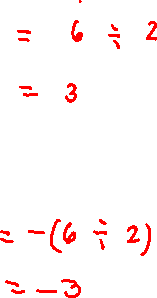 = 6 ÷ 2
= 3
= -(6 ÷ 2)
= -3